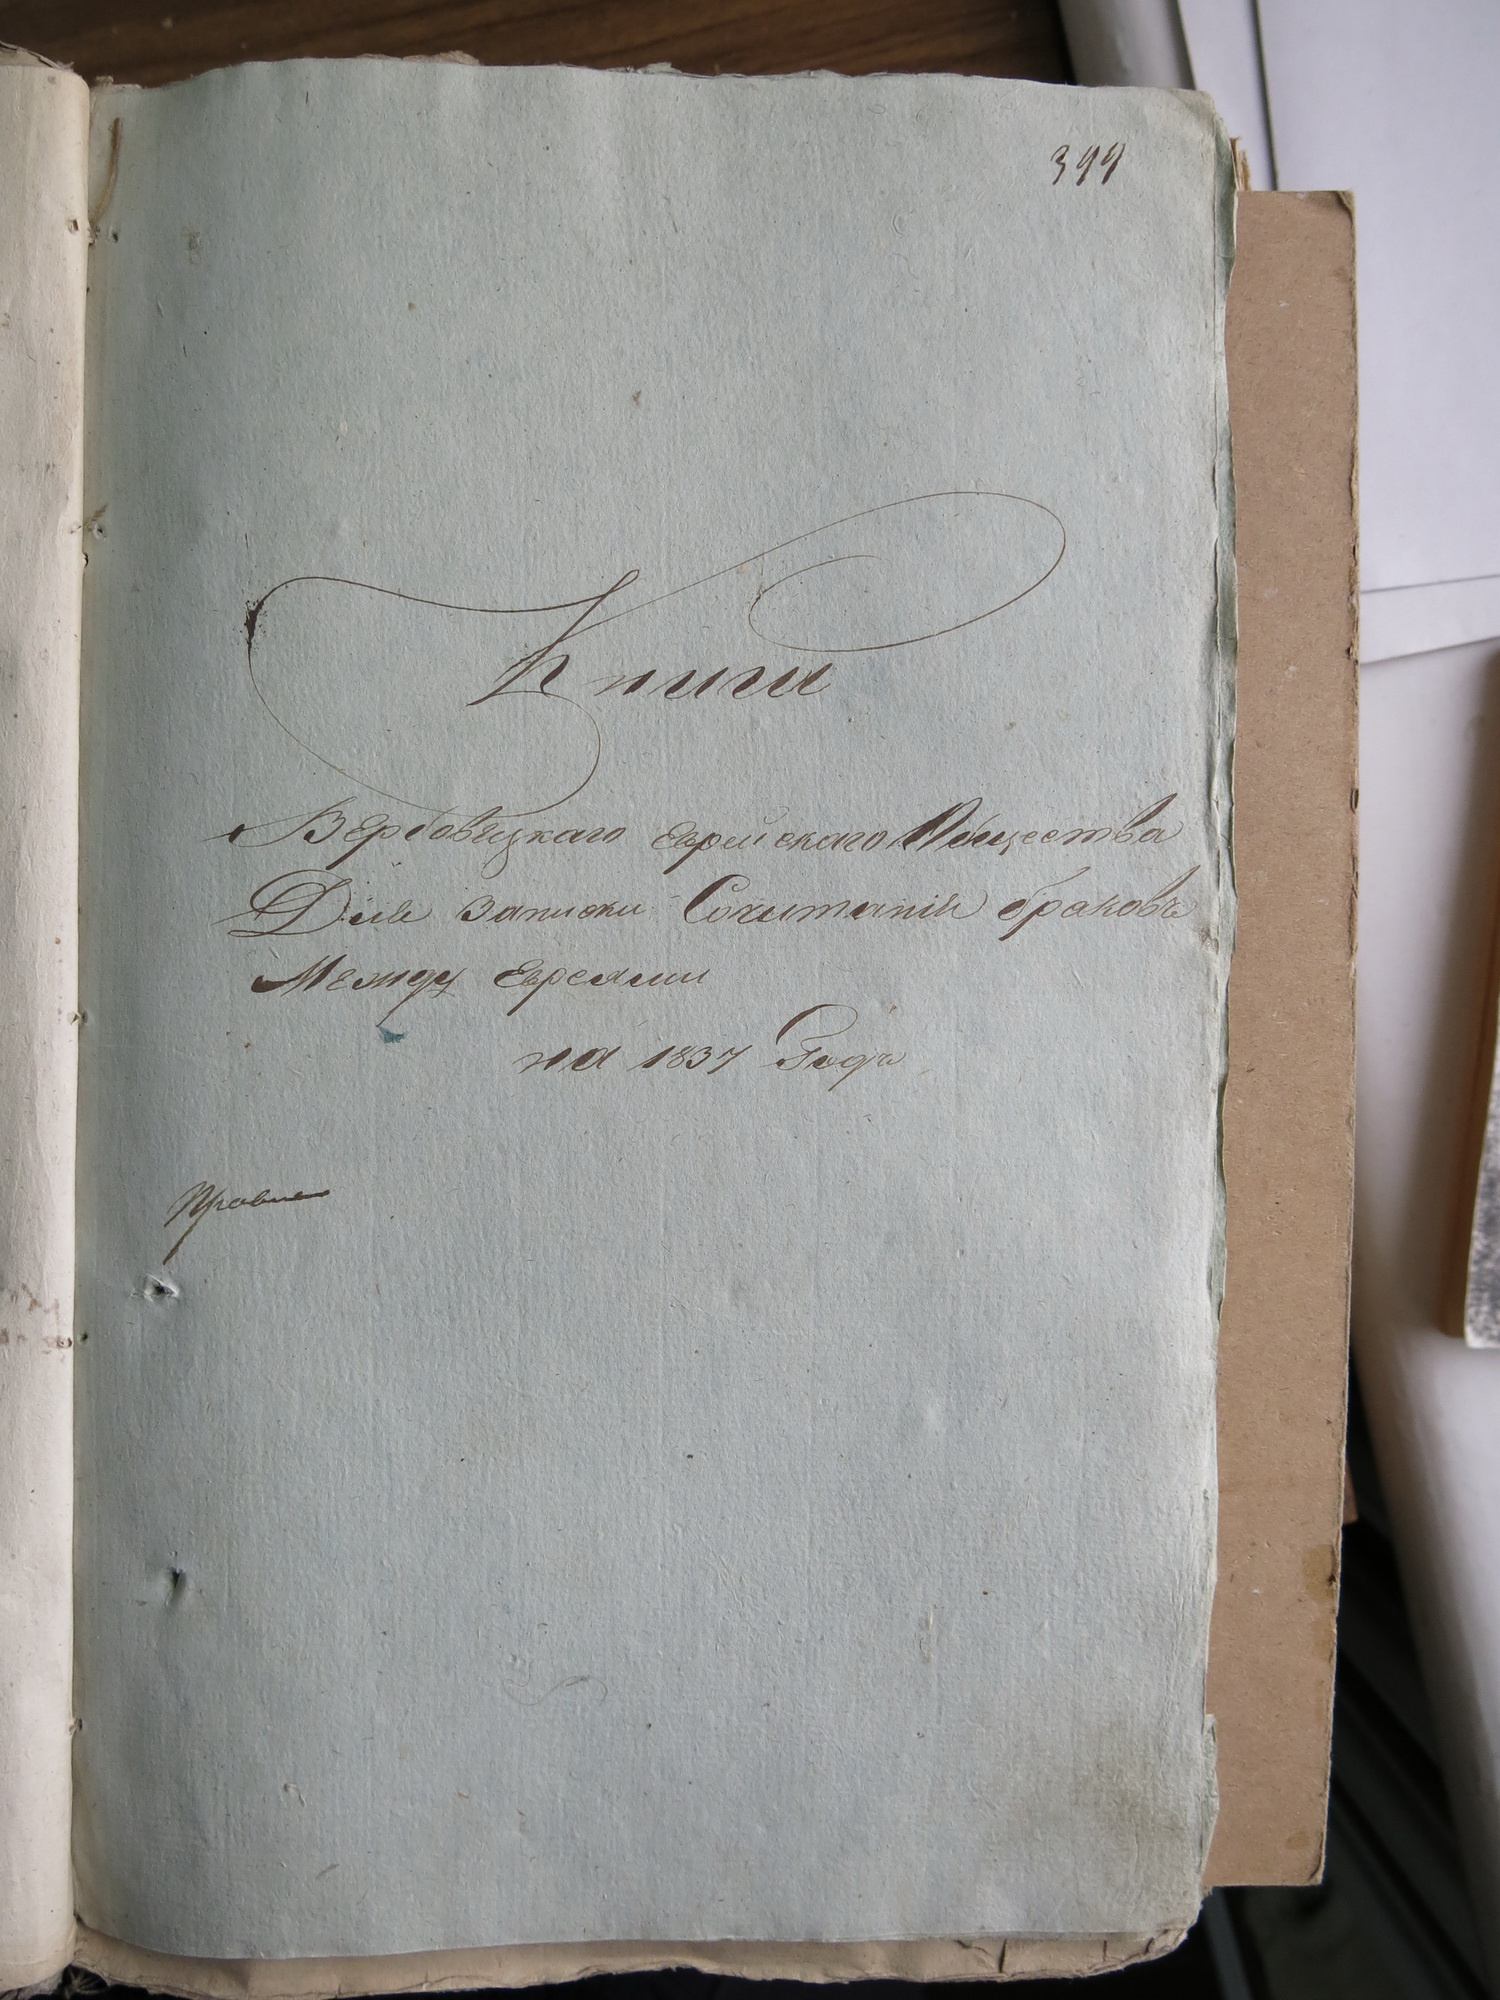 399
Книга
Вербовецкаго Еврейскаго Общества
Для Записки Сочитаній браковъ
Между Евреями
на 1837 Годъ